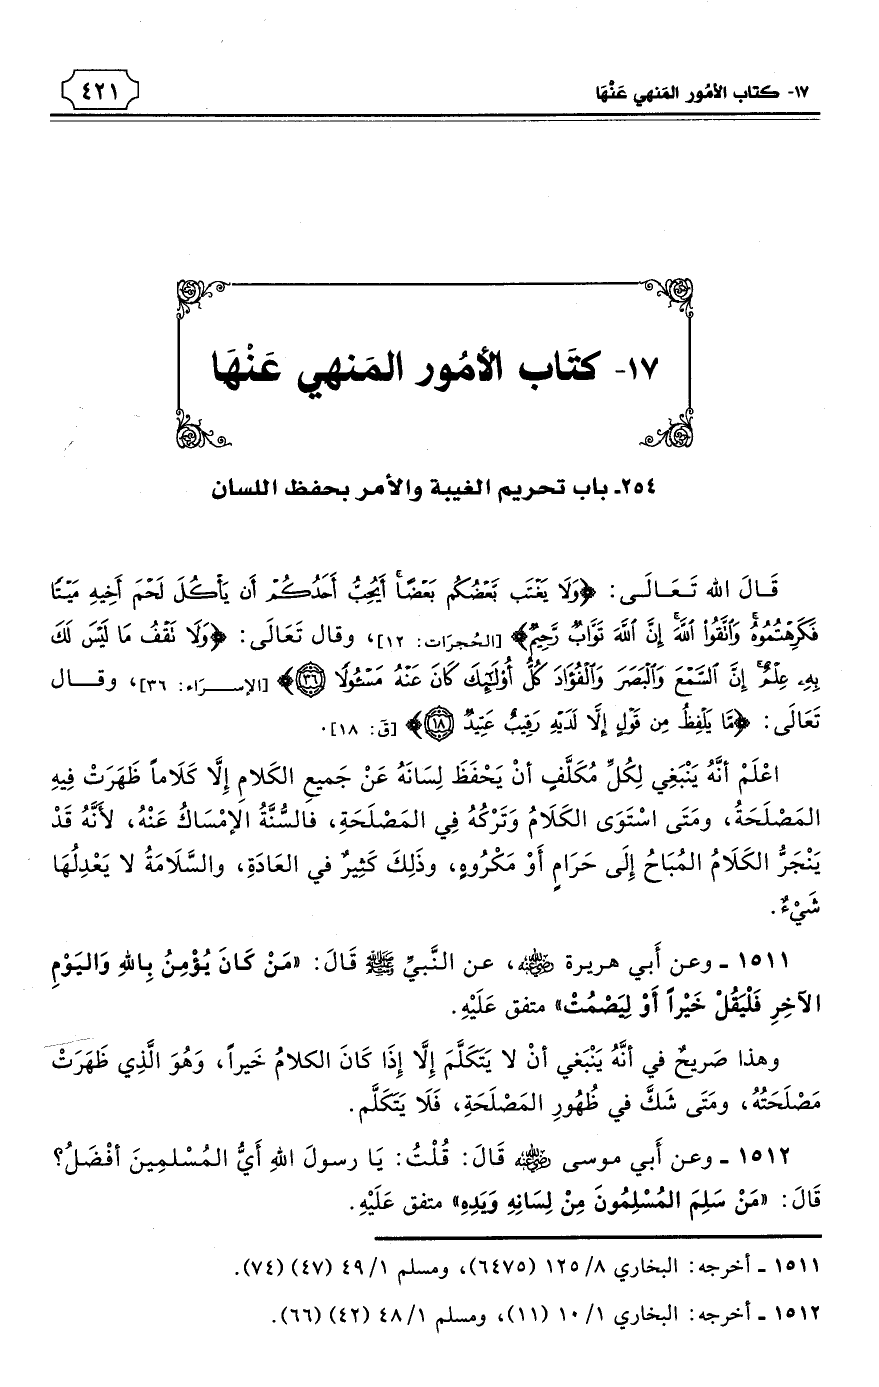 ١٧- كتاب الأمُور المَنهي عَنْهَا
٤٢١
١٧- كتَاب الأمُور المَنهي عَنْهَا
٢٥٤ـ باب تحريم الغيبة والأمر بحفظ اللسان
قَالَ الله تَعَالَى: ﴿وَلَا يَغْتَب بَّعْضُكُم بَعْضًا ۚ أَيُحِبُّ أَحَدُكُمْ أَن يَأْكُلَ لَحْمَ أَخِيهِ مَيْتًا
فَكَرِهْتُمُوهُ ۚ وَاتَّقُوا اللَّهَ ۚ إِنَّ اللَّهَ تَوَّابٌ رَّحِيمٌ﴾ [الحُجرَات: ١٢]، وقال تَعَالَى: ﴿وَلَا تَقْفُ مَا لَيْسَ لَكَ
بِهِۦ عِلْمٌ ۚ إِنَّ السَّمْعَ وَالْبَصَرَ وَالْفُؤَادَ كُلُّ أُولَٰئِكَ كَانَ عَنْهُ مَسْئُولًا ٣٦﴾ [الإسرَاء: ٣٦]، وقال
تَعَالَى: ﴿مَّا يَلْفِظُ مِن قَوْلٍ إِلَّا لَدَيْهِ رَقِيبٌ عَتِيدٌ ١٨﴾ [ق: ١٨].
اعْلَمْ أنَّهُ يَنْبَغِي لِكُلِّ مُكَلَّفٍ أنْ يَحْفَظَ لِسَانَهُ عَنْ جَميعِ الكَلامِ إلَّا كَلَاماً ظَهَرَتْ فِيهِ
المَصْلَحَةُ، ومَتَى اسْتَوَى الكَلَامُ وَتَرْكُهُ فِي المَصْلَحَةِ، فالسُّنَّةُ الإمْسَاكُ عَنْهُ، لأنَّهُ قَدْ
يَنْجَرُّ الكَلَامُ المُبَاحُ إلَى حَرَامٍ أَوْ مَكْرُوهٍ، وذَلِكَ كَثِيرٌ في العَادَةِ، والسَّلَامَةُ لا يَعْدِلُهَا
شَيْءٌ.
١٥١١ ـ وعن أَبي هريرة رضي الله عنه، عن النَّبيِّ ﷺ قَالَ: «مَنْ كَانَ يُؤْمِنُ بِاللهِ وَاليَوْمِ
الآخِرِ فَلْيَقُلْ خَيْراً أَوْ لِيَصْمُتْ» متفق عَلَيْهِ.
وهذا صَريحٌ في أنَّهُ يَنْبَغي أنْ لا يَتَكَلَّمَ إلَّا إذَا كَانَ الكلامُ خَيراً، وَهُوَ الَّذِي ظَهَرَتْ
مَصْلَحَتُهُ، ومَتَى شَكَّ في ظُهُورِ المَصْلَحَةِ، فَلَا يَتَكَلَّم.
١٥١٢ ـ وعن أَبي موسى رضي الله عنه قَالَ: قُلْتُ: يَا رسولَ اللهِ أَيُّ المُسْلمِينَ أفْضَلُ؟
قَالَ: «مَنْ سَلِمَ المُسْلِمُونَ مِنْ لِسَانِهِ وَيَدِهِ» متفق عَلَيْهِ.
١٥١١ ـ أخرجه: البخاري ٨/ ١٢٥ (٦٤٧٥)، ومسلم ١/ ٤٩ (٤٧) (٧٤).
١٥١٢ ـ أخرجه: البخاري ١/ ١٠ (١١)، ومسلم ١/ ٤٨ (٤٢) (٦٦).